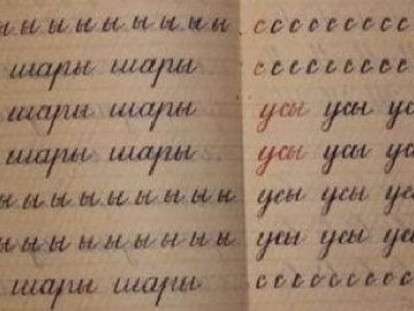 ы ы ы ы ы ы ы ы ы
шары шары
шары шары
шары шары
ы ы ы ы ы ы ы ы ы
ы ы ы ы ы ы ы ы ы
шары шары
с с с с с с с с с
с с с с с с с с с
усы усы ус
усы усы ус
усы усы усы
усы усы усы
с с с с с с с с с